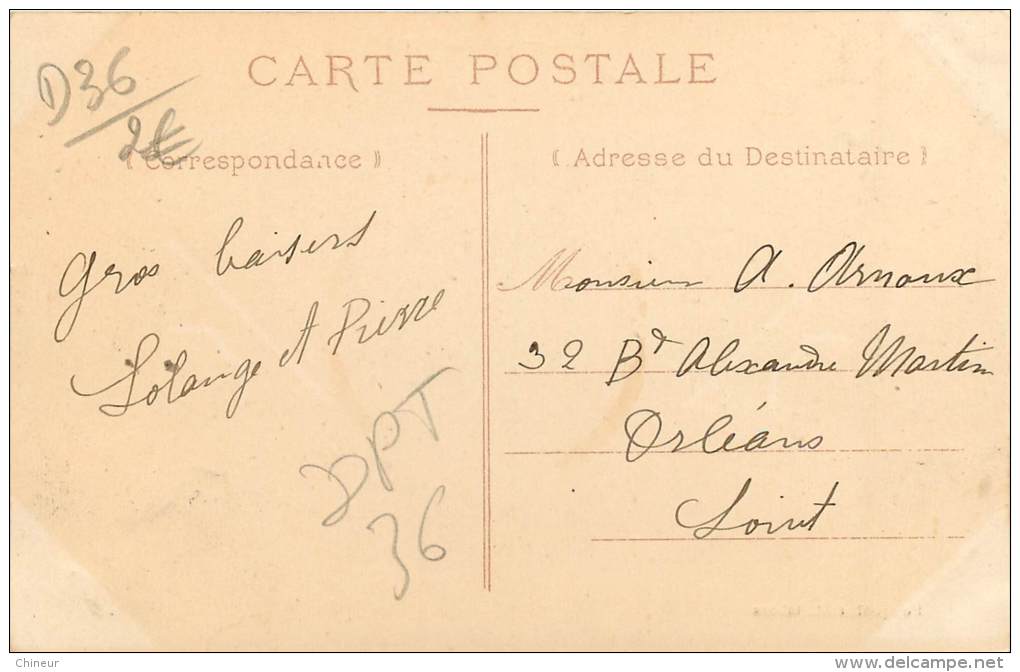 CARTE POSTALE
D36/2€
Correspondance
Gros baisers
Solange et Pierre
DPT
36
Adresse du Destinataire
Monsieur A. Arnoux
32 Bd Alexandre Martin
Orléans
Loiret
Chineur
delcampe.net